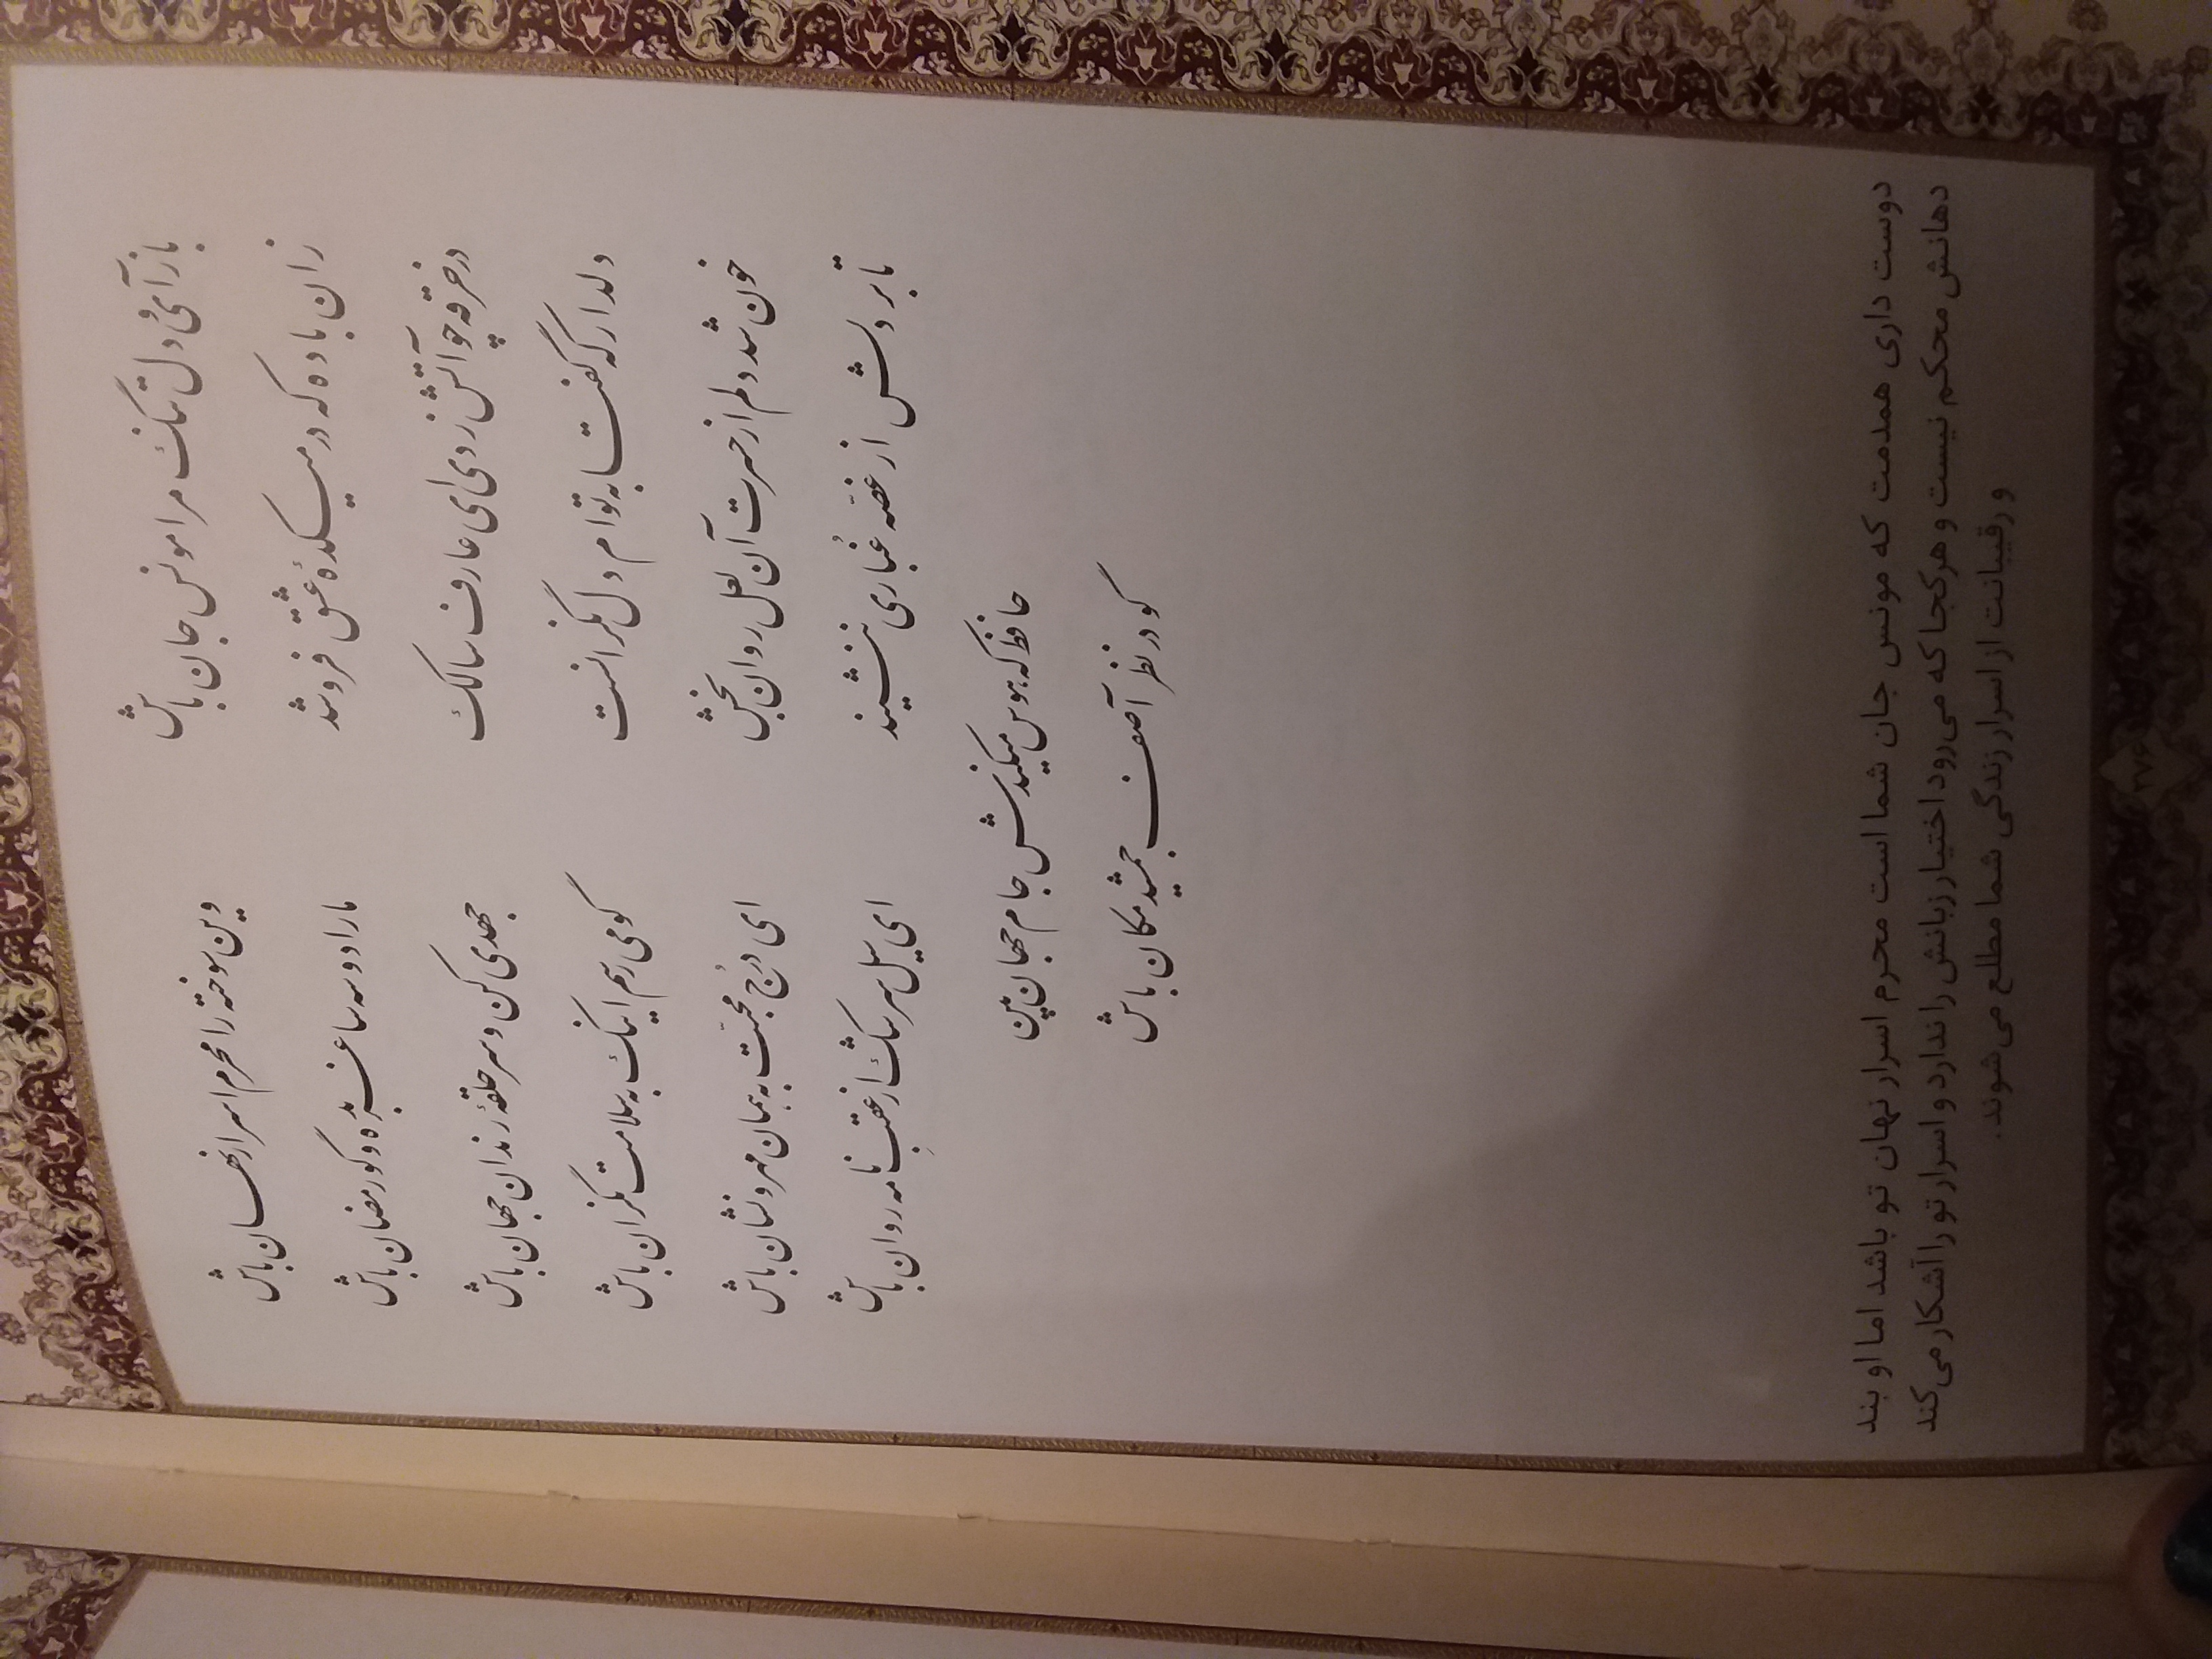 بازآی و دل تنگ مرا مونس جان باش
وین سوخته را محرم اسرار نهان باش
زان باده که در میکدهٔ عشق فروشد
ما را دو سه ساغر بده و گو رمضان باش
در خرقه چو آتش زدی ای عارف سالک
جهدی کن و سر حلقهٔ رندان جهان باش
دلدار که گفتا به توام دل نگرانست
گو می رسم اینک به سلامت نگران باش
خون شد دلم از حسرت آن لعل روان بخش
ای دُرج محبّت به همان مهر و نشان باش
تا بر دلش از غصّه غُباری ننشیند
ای سیل سرشک از عقبِ نامه روان باش
حافظ که هوس میکندش جام جهان بین
گو در نظر آصف جمشید مکان باش
دوست داری همدمت که مونس جان شما است محرم اسرار نهان تو باشد اما او بند
دهانش محکم نیست و هرکجا که می‌رود اختیار زبانش را ندارد و اسرار تو را آشکار می‌کند
و رقیبانت از اسرار زندگی شما مطلع می‌شوند.